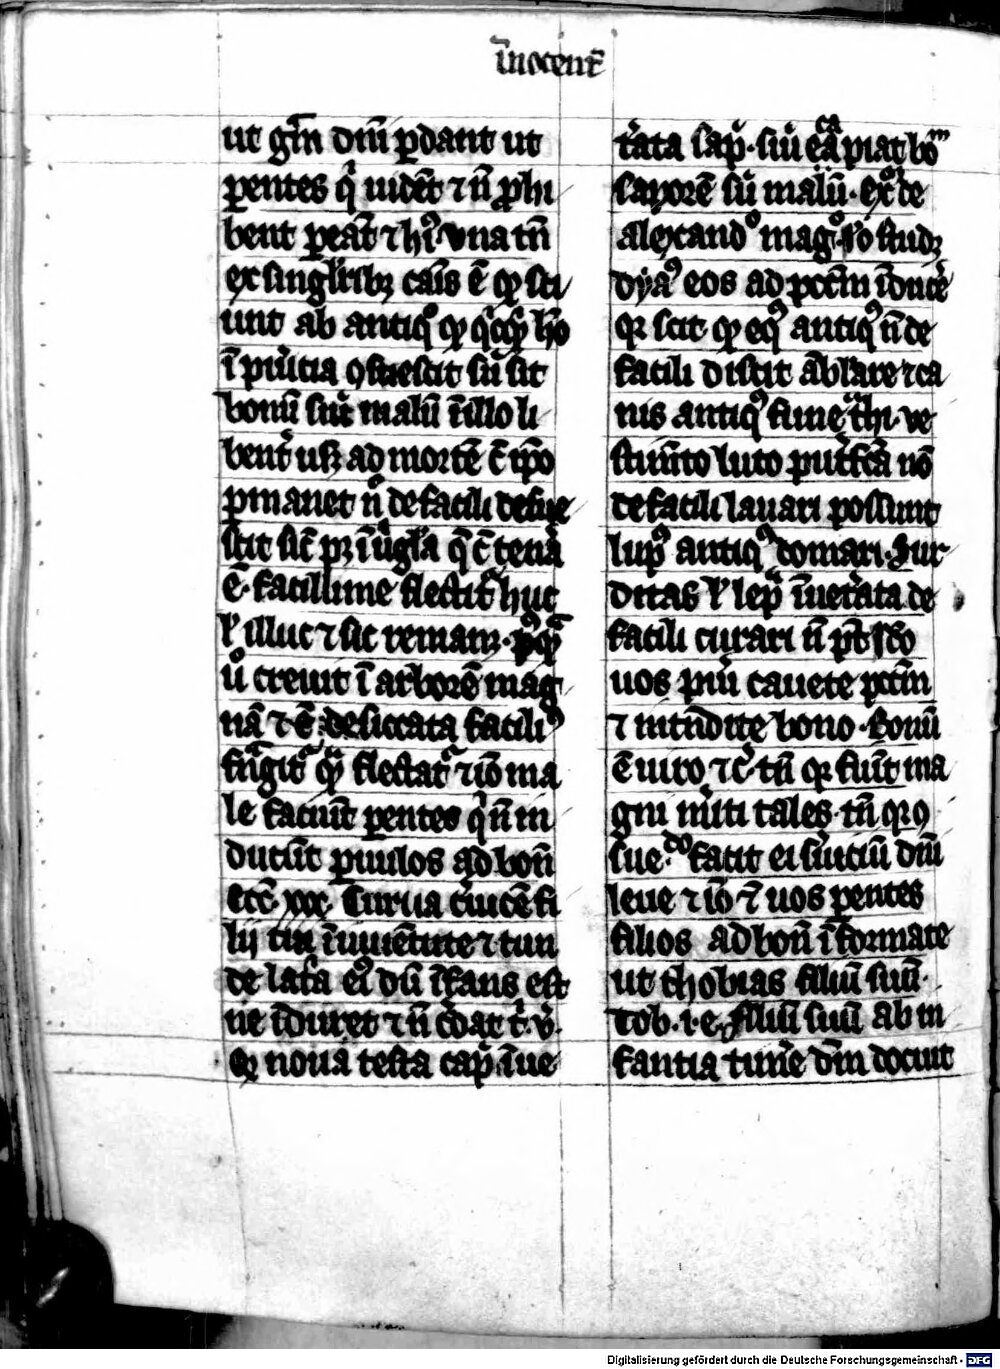 īnocent̄
ut gr̄m dm̄ ꝑdant ut
ꝑentes q̇ uidēt ⁊ n̄ ꝓhi
bent ꝑeāt ⁊ hı̇ vna tn̄
ex singl̓ribꝫ cāis ē ꝙ sci
unt ab antiqͦ ꝙ q̇cqͥ hō
ī puı̓tia ꝯsuescit siū sit
bonū siue malū ī illo li
bent̓ usqꝫ ad mortē ī ip̄o
ꝑmanet n̄ de facili desue
scit sic̄ pꝫ ī ūgl̓a q̄ c̄ tenā
ē facillime flectit̓ huc
l̓ illuc ⁊ sic remanꝫ pꝰqͣ
ūͦ creuit ī arborē mag
nā ⁊ ē desiccata faciliꝰ
frn̄git̓ qͣ flectat̓ ⁊ iō ma
le faciūt ꝑentes q̇ n̄ in
ducūt ꝑuulos ad bonū
Ecc̄ xxx Curua c̓uicē fi
lij tui ī iuuētute ⁊ tun
de lat̓a eiꝰ dū īfans est
ne īduret ⁊ n̄ c̓dat t̓ vͦ
qꝛ noua testa capͥt īue
t̓ata sap̄ siū cā piat bōm
saporē siū malū exͦ de
alexandͦ magͦ so studꝫ
dyaꝰ eos ad pctm̄ īduce̓
qꝛ scit ꝙ eqꝰ antiqꝰ n̄ de
facili discit ābl̓are ⁊ ca
nis antiqꝰ fune t̓hi ve
stimn̄to luto put̓fc̄a nō
de facili lauari possunt
lupꝰ antiqꝰ domari Sur
ditas l̓ lep̄ īuet̓ata de
facili curari n̄ pt̄ sc̄do
uos puı̓ cauete pctm̄
⁊ intn̄dite bono Bonū
ē uiro ⁊ c̓ tn̄ qꝛ sunt ma
gni mı̓ti tales tn̄ qꝛ ꝯ
sue dͦ facit ei s̓uiciū dm̄
leue ⁊ iō ⁊ uos ꝑentes
filios ad bonū īformate
ut thobias filiū suū
Tob. i. e. filiū suū ab in
fantia time̓ dm̄ docuit
Digitalisierung gefördert durch die Deutsche Forschungsgemeinschaft - DFG